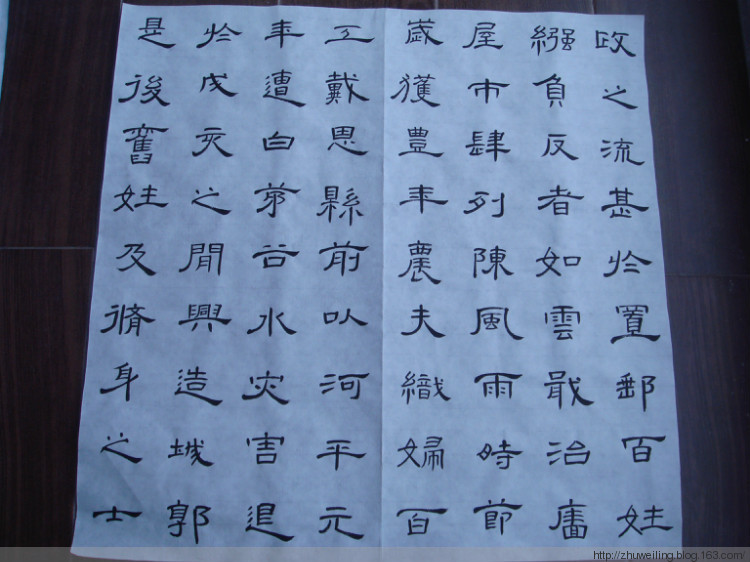 政之流甚於置郵百姓
繦負反者如雲戢治廧
屋市肆列陳風雨時節
歲獲豐年農夫織婦百
工戴恩縣前以河平元
年遭白茅谷水灾害退
於戌亥之間興造城郭
是後舊姓及脩身之士
http://zhuweiling.blog.163.com/